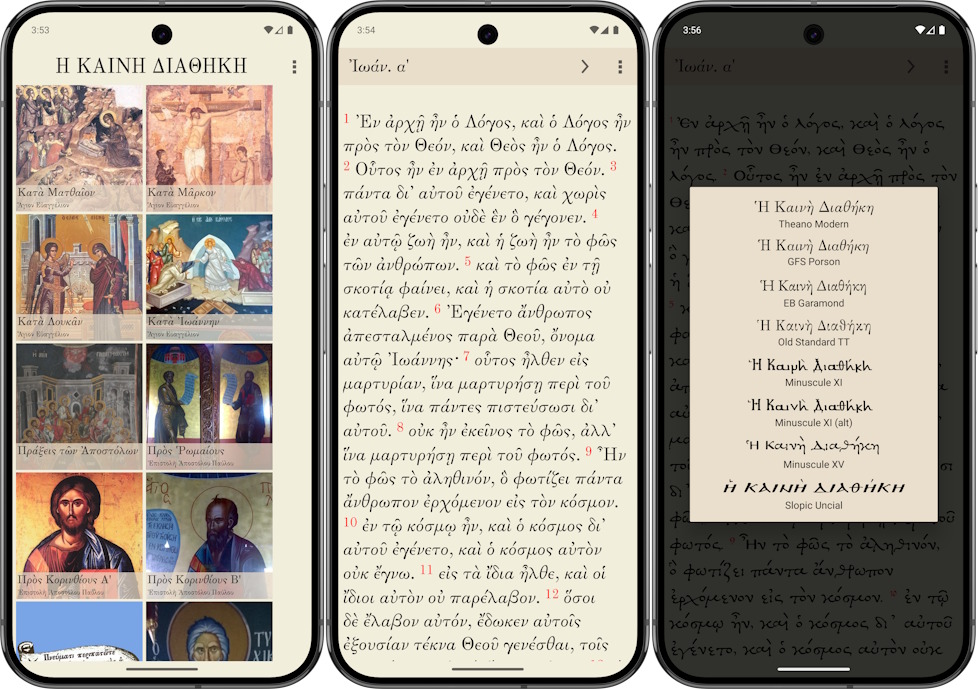 3:53
Η ΚΑΙΝΗ ΔΙΑΘΗΚΗ
Κατὰ Ματθαῖον
Ἅγιον Εὐαγγέλιον
Κατὰ Μᾶρκον
Ἅγιον Εὐαγγέλιον
Κατὰ Λουκᾶν
Ἅγιον Εὐαγγέλιον
Κατὰ Ἰωάννην
Ἅγιον Εὐαγγέλιον
Πράξεις τῶν Ἀποστόλων
Πρὸς Ῥωμαίους
Ἐπιστολὴ Ἀποστόλου Παύλου
Πρὸς Κορινθίους Α'
Ἐπιστολὴ Ἀποστόλου Παύλου
Πρὸς Κορινθίους Β'
Ἐπιστολὴ Ἀποστόλου Παύλου
Πνεύματι περιπατεῖτε
3:54
Ἰωάν. α'
1 Ἐν ἀρχῇ ἦν ὁ Λόγος, καὶ ὁ Λόγος ἦν
πρὸς τὸν Θεόν, καὶ Θεὸς ἦν ὁ Λόγος.
2 Οὗτος ἦν ἐν ἀρχῇ πρὸς τὸν Θεόν. 3
πάντα δι' αὐτοῦ ἐγένετο, καὶ χωρὶς
αὐτοῦ ἐγένετο οὐδὲ ἓν ὃ γέγονεν. 4
ἐν αὐτῷ ζωὴ ἦν, καὶ ἡ ζωὴ ἦν τὸ φῶς
τῶν ἀνθρώπων. 5 καὶ τὸ φῶς ἐν τῇ
σκοτίᾳ φαίνει, καὶ ἡ σκοτία αὐτὸ οὐ
κατέλαβεν. 6 Ἐγένετο ἄνθρωπος
ἀπεσταλμένος παρὰ Θεοῦ, ὄνομα
αὐτῷ Ἰωάννης· 7 οὗτος ἦλθεν εἰς
μαρτυρίαν, ἵνα μαρτυρήσῃ περὶ τοῦ
φωτός, ἵνα πάντες πιστεύσωσι δι'
αὐτοῦ. 8 οὐκ ἦν ἐκεῖνος τὸ φῶς, ἀλλ'
ἵνα μαρτυρήσῃ περὶ τοῦ φωτός. 9 Ἦν
τὸ φῶς τὸ ἀληθινόν, ὃ φωτίζει πάντα
ἄνθρωπον ἐρχόμενον εἰς τὸν κόσμον.
10 ἐν τῷ κόσμῳ ἦν, καὶ ὁ κόσμος δι'
αὐτοῦ ἐγένετο, καὶ ὁ κόσμος αὐτὸν
οὐκ ἔγνω. 11 εἰς τὰ ἴδια ἦλθε, καὶ οἱ
ἴδιοι αὐτὸν οὐ παρέλαβον. 12 ὅσοι
δὲ ἔλαβον αὐτόν, ἔδωκεν αὐτοῖς
ἐξουσίαν τέκνα Θεοῦ γενέσθαι, τοῖς
3:56
Ἰωάν. α'
Ἐν ἀρχῇ ἦν ὁ λόγος, καὶ ὁ λόγος
ἦν πρὸς τὸν Θεόν, καὶ Θεὸς ἦν ὁ
λόγος. 2 Οὗτος ἦν ἐν ἀρχῇ πρὸς τὸν
Ἡ Καινὴ Διαθήκη
Theano Modern
Ἡ Καινὴ Διαθήκη
GFS Porson
Ἡ Καινὴ Διαθήκη
EB Garamond
Ἡ Καινὴ Διαθήκη
Old Standard TT
Ἡ Καινὴ Διαθήκη
Minuscule XI
Ἡ Καινὴ Διαθήκη
Minuscule XI (alt)
Ἡ Καινὴ Διαθήκη
Minuscule XV
Ἡ ΚΑΙΝῊ ΔΙΑΘΉΚΗ
Slopic Uncial
φωτός. 9 Ἦν τὸ φῶς τὸ ἀληθινόν,
ὃ φωτίζει πάντα ἄνθρωπον
ἐρχόμενον εἰς τὸν κόσμον. 10 ἐν τῷ
κόσμῳ ἦν, καὶ ὁ κόσμος δι' αὐτοῦ
ἐγένετο, καὶ ὁ κόσμος αὐτὸν οὐκ